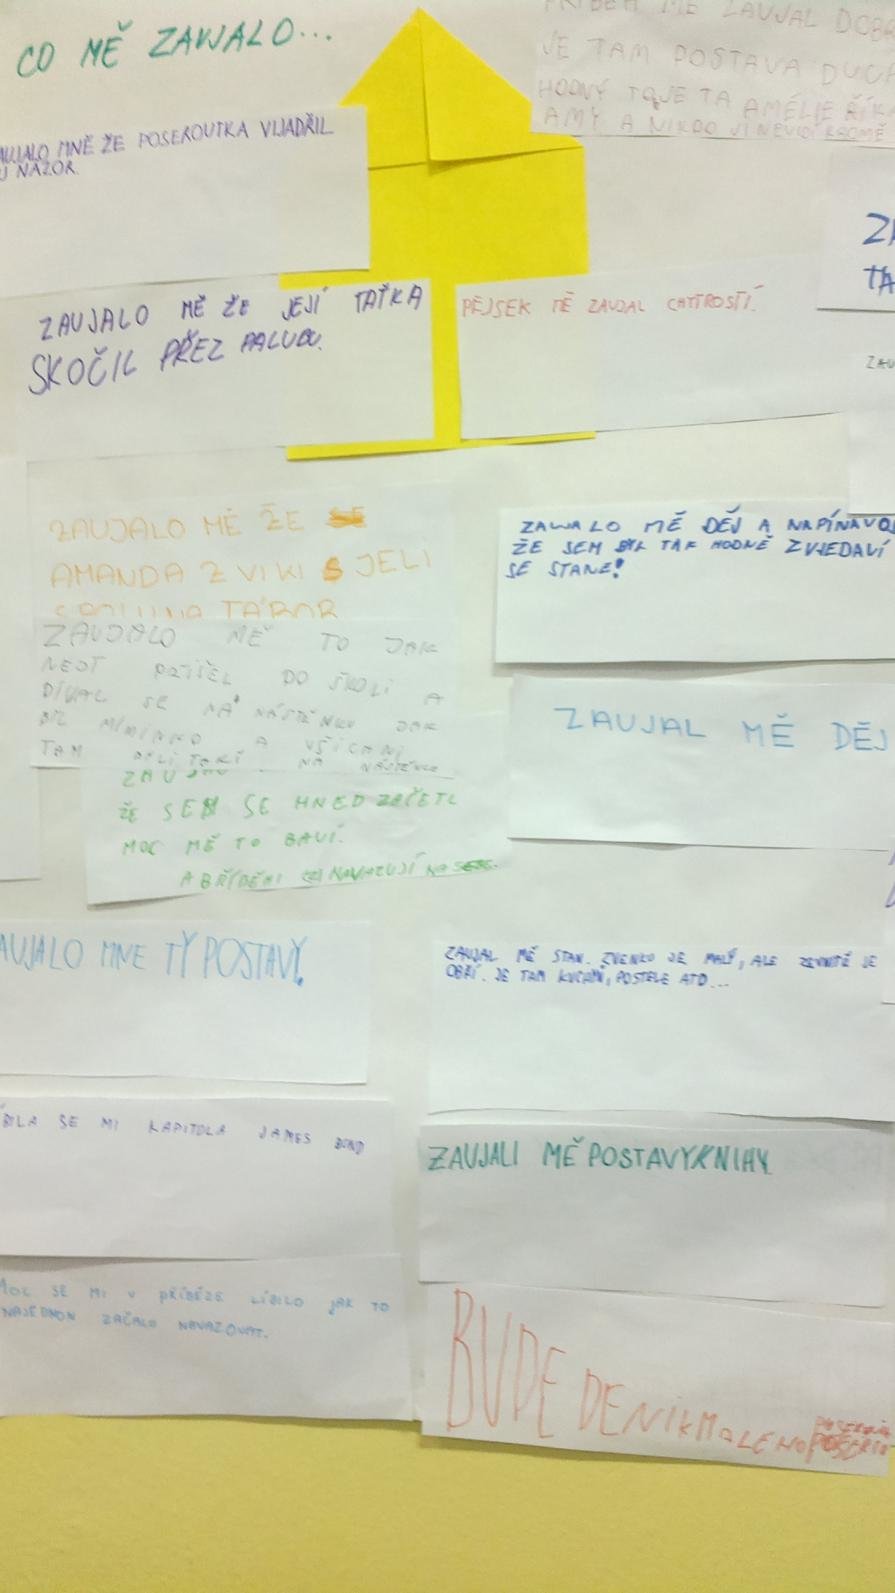 CO MĚ ZAUJALO...
PŘÍBĚH MĚ ZAUJAL
JE TAM POSTAVA
HODNÝ TO JE TA AMÉLIE
AMY. A NIKDO JI NEVIDÍ KROMĚ
AUJALO MNĚ ŽE POSEROUTKA VIJADŘIL
J NÁZOR.
ZAUJALO MĚ ŽE JEJÍ TAŤKA
SKOČIL PŘEZ PALUBU.
PEJSEK MĚ ZAUJAL CHITROSTÍ.
ZA
TA
ZAU
ZAUJALO MĚ ŽE
AMANDA Z VIKI S JELI
TÁBOR
ZAUJALO MĚ DĚJ A NAPÍNAVO
ŽE SEM BYL TAK HODNĚ ZVJEDAVÍ
SE STANE!
ZAUJALO MĚ TO JAK
PŘIŠEL DO ŠKOLI A
DÍVAL SE NA NÁSTĚNKU JAK
BIL MIMINKO A VŠICHNI
TAM BILI TAKÍ NA NÁSTĚNCE
ZAUJAL MĚ DĚJ
ZAUJ
ŽE SEM SE HNED ZAČETL
MOC MĚ TO BAVÍ.
A BŘÍBĚHI NAVAZUJÍ NA SEBE.
AUJALO MNE TY POSTAVY.
ZAUJAL MĚ STAN. ZVENKU JE MALÝ, ALE ZEVNITŘ JE
OBŘÍ. JE TAM KUCHYŇ, POSTELE ATD...
ÍBILA SE MI KAPITOLA JAMES BOND
ZAUJALI MĚ POSTAVY KNIHY
MOC SE MI V PŘÍBĚZE LÍBILO JAK TO
NAJEDNOU ZAČALO NAVAZOVAT.
BUDE DENÍK MALÉHO